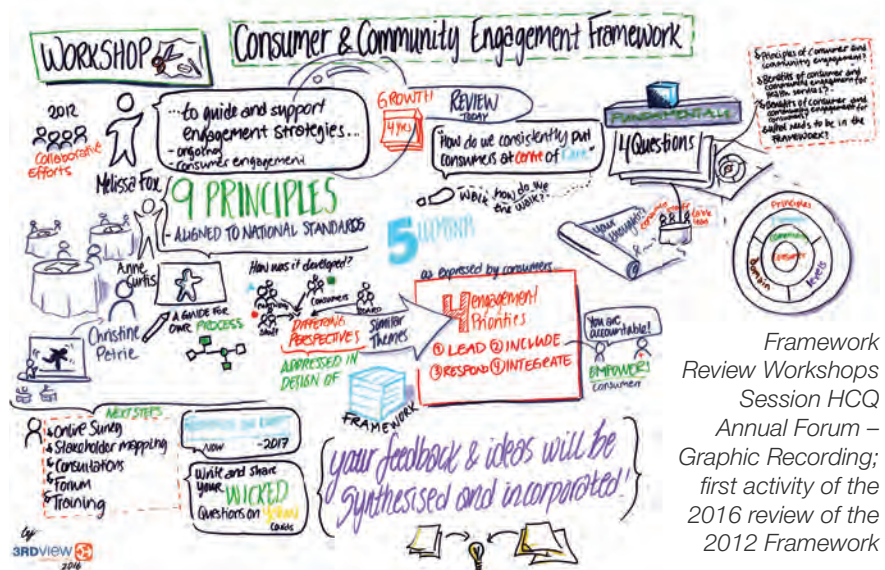 WORKSHOP
Consumer & Community Engagement Framework
2012
Collaborative
Efforts
...to guide and support
engagement strategies...
- ongoing
- consumer engagement
GROWTH
4 yrs
REVIEW
TODAY
"How do we consistently put
consumers at centre of Care"
WALK how do we
the walk?
FUNDAMENTALS
4 Questions
Principles of consumer and
community engagement?
Benefits of consumer and
community engagement for
health services?
Benefits of consumer and
community engagement for
consumers?
What needs to be in the
FRAMEWORK?
Melissa Fox
9 PRINCIPLES
- ALIGNED TO NATIONAL STANDARDS
5
your thoughts?
Principles
domain
levels
Anne
Curtis
A GUIDE FOR
OUR PROCESS
Christine
Petrie
How was it developed?
consumers
BOARD
staff
DIFFERING
PERSPECTIVES
Similar
Themes
ADDRESSED IN
DESIGN OF
FRAMEWORK
as expressed by consumers...
4 engagement
Priorities
① LEAD ② INCLUDE
③ RESPOND ④ INTEGRATE
You are
accountable!
EMPOWERS
consumers
NEXT STEPS
Online Survey
Stakeholder mapping
Consultations
Forum
Training
NOW -2017
Write and share
your WICKED
Questions on yellow
cards
your feedback & ideas will be
synthesised and incorporated!
by
3RDVIEW
2016
Framework
Review Workshops
Session HCQ
Annual Forum –
Graphic Recording;
first activity of the
2016 review of the
2012 Framework